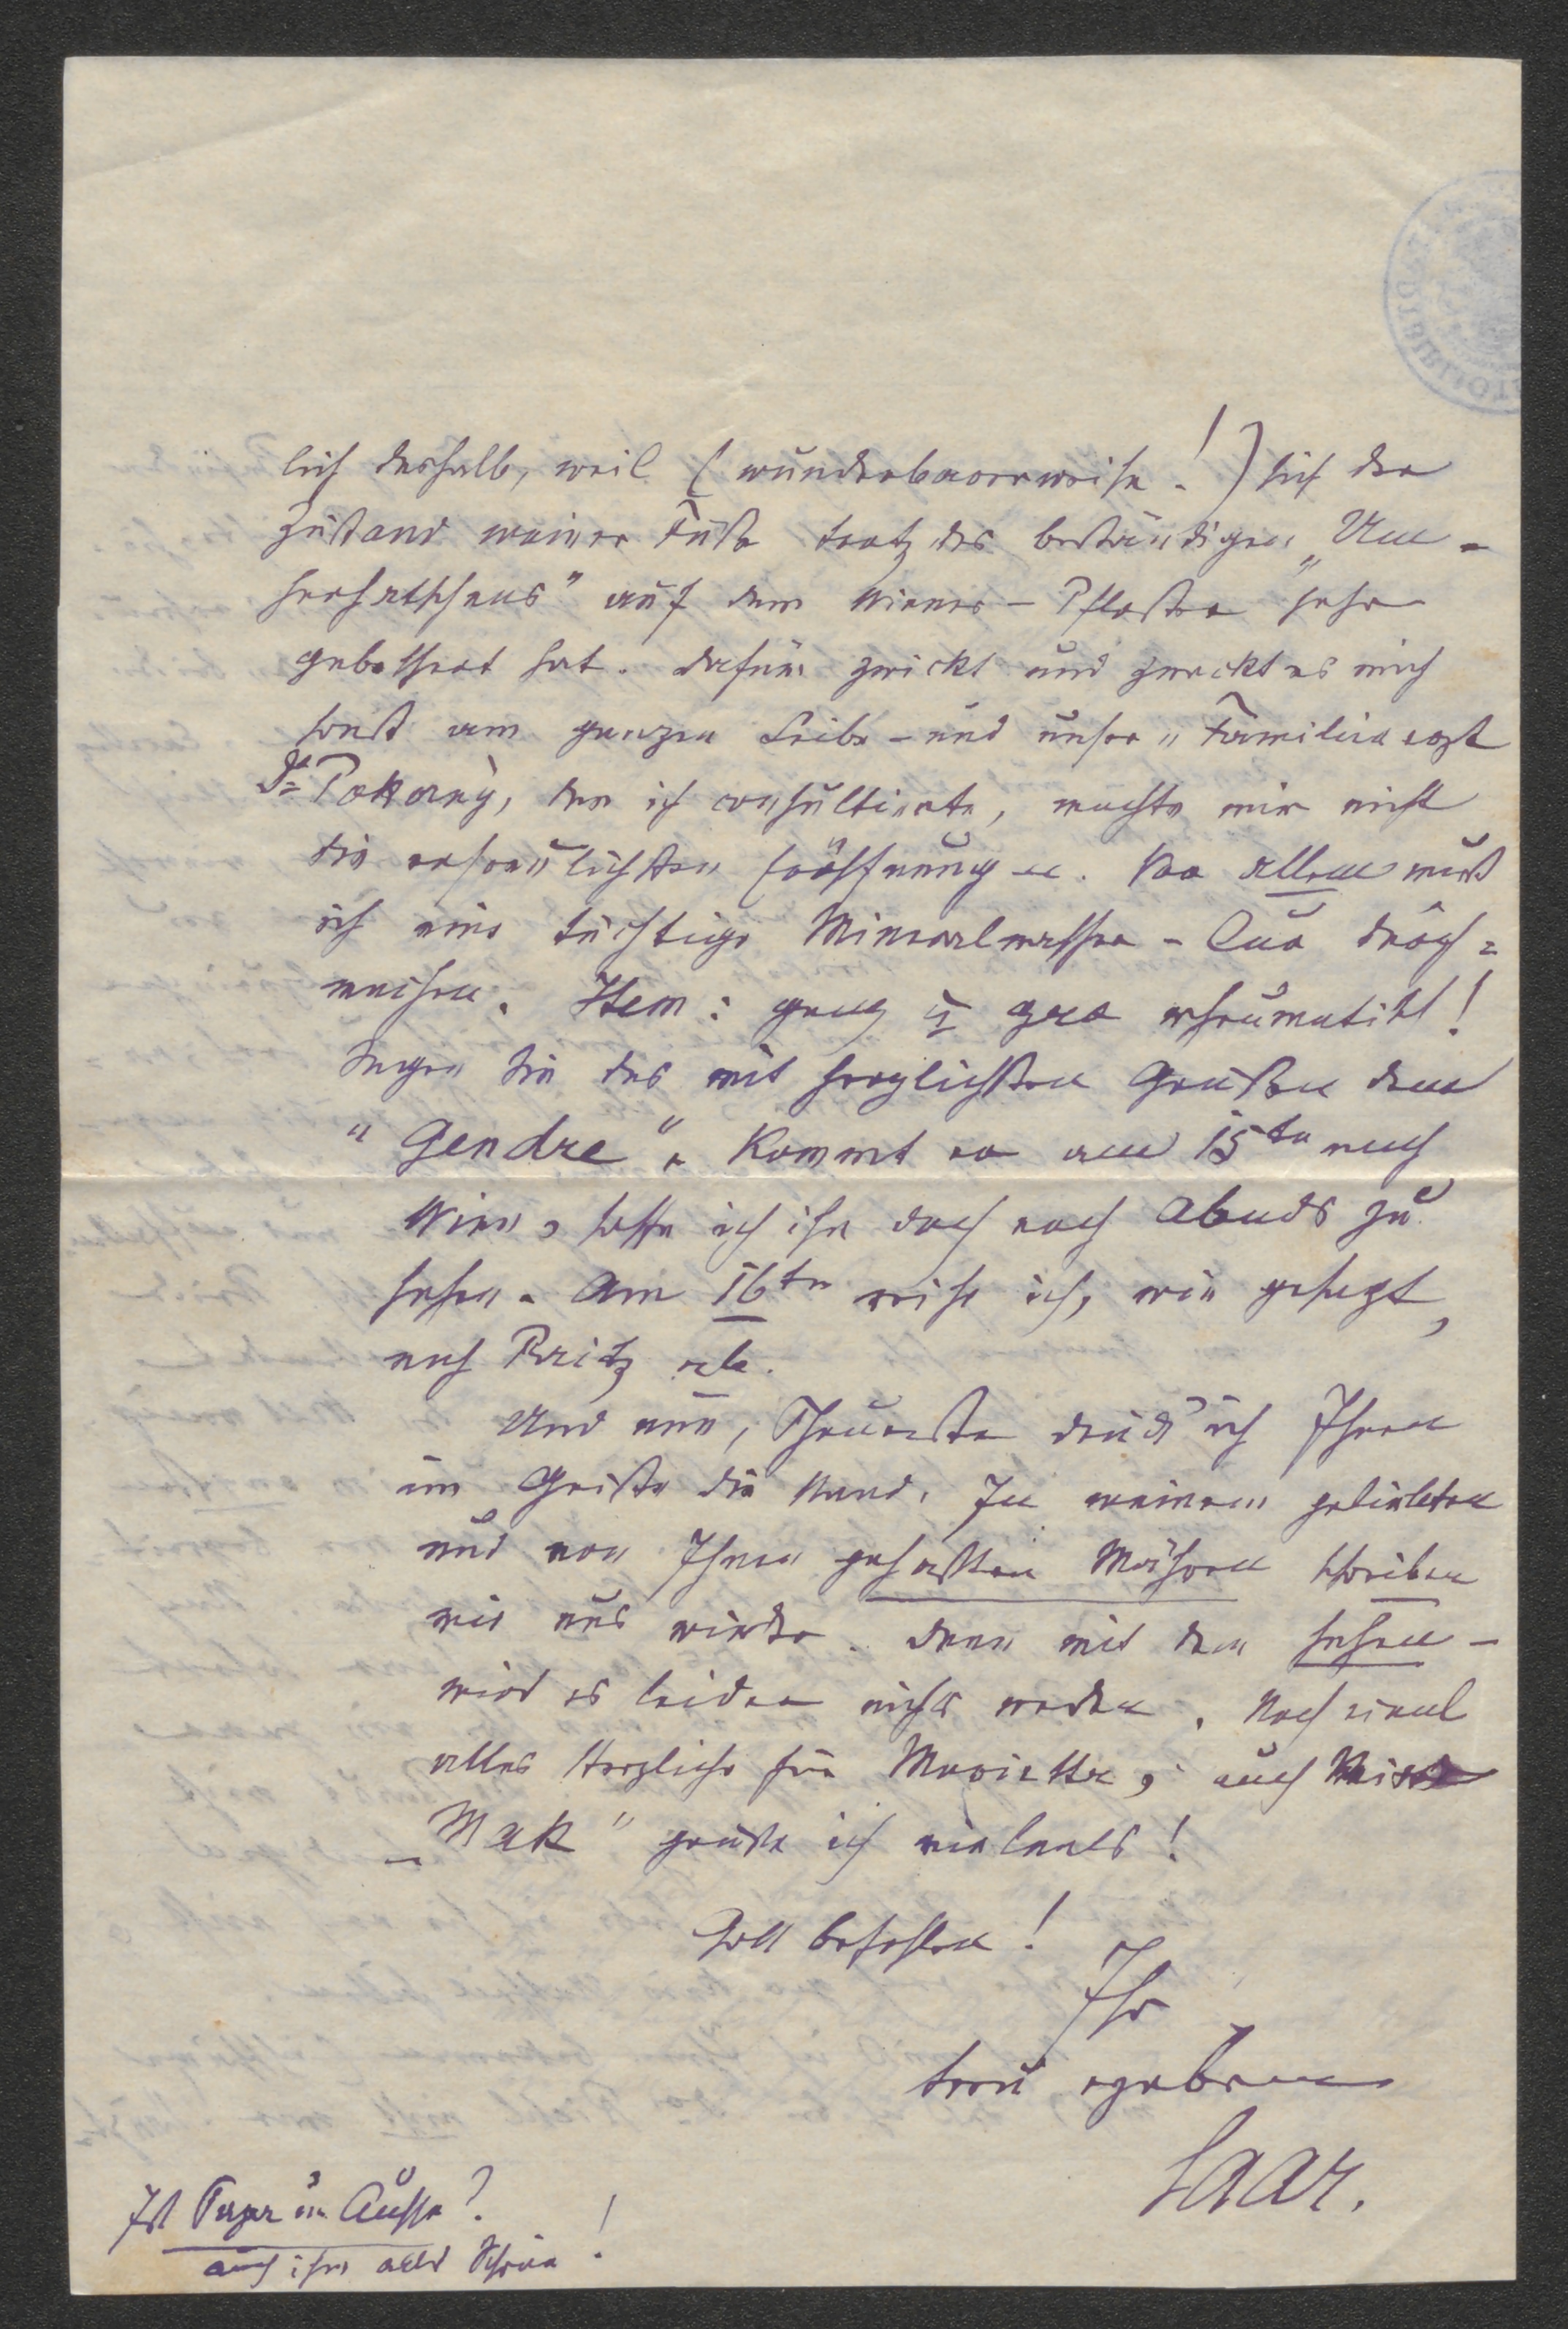 lich deshalb, weil (wunderbarerweise!) sich der
Zustand meiner Füße trotz des beständigen „Um-
herhatschens" auf dem Wiener-Pflaster sehr
gebessert hat. Dafür zwickt und zwackt es mich
sonst am ganzen Leibe - und unser „Familienarzt
Dr Pokorny, den ich consultierte, machte mir nicht
die erfreulichsten Eröffnungen. Vor allem muß
ich eine tüchtige Mineralwasser-Cur durch=
machen. Item: ganz u gar rheumatisch!
Sagen Sie das mit herzlichsten Grüßen dem
"Gendre". Kommt er am 15ten nach
Wien, hoffe ich ihn doch noch Abends zu
sehen. Am 16ten reise ich, wie gesagt,
nach Raitz ab.
Und nun, Theuerste drück' ich Ihnen
im Geiste die Hand. In meinem geliebten
und von Ihnen gehaßten Mähren schreiben
wir uns wieder. Denn mit dem sehen -
wird es leider nichts werden. Noch einmal
alles Herzliche für Marietta; auch Miss
„Mak" grüße ich vielmals!
Gott befohlen!
Ihr
treu ergebener
Saar.
Ist in Aussee?
auch ihm alles Schöne!